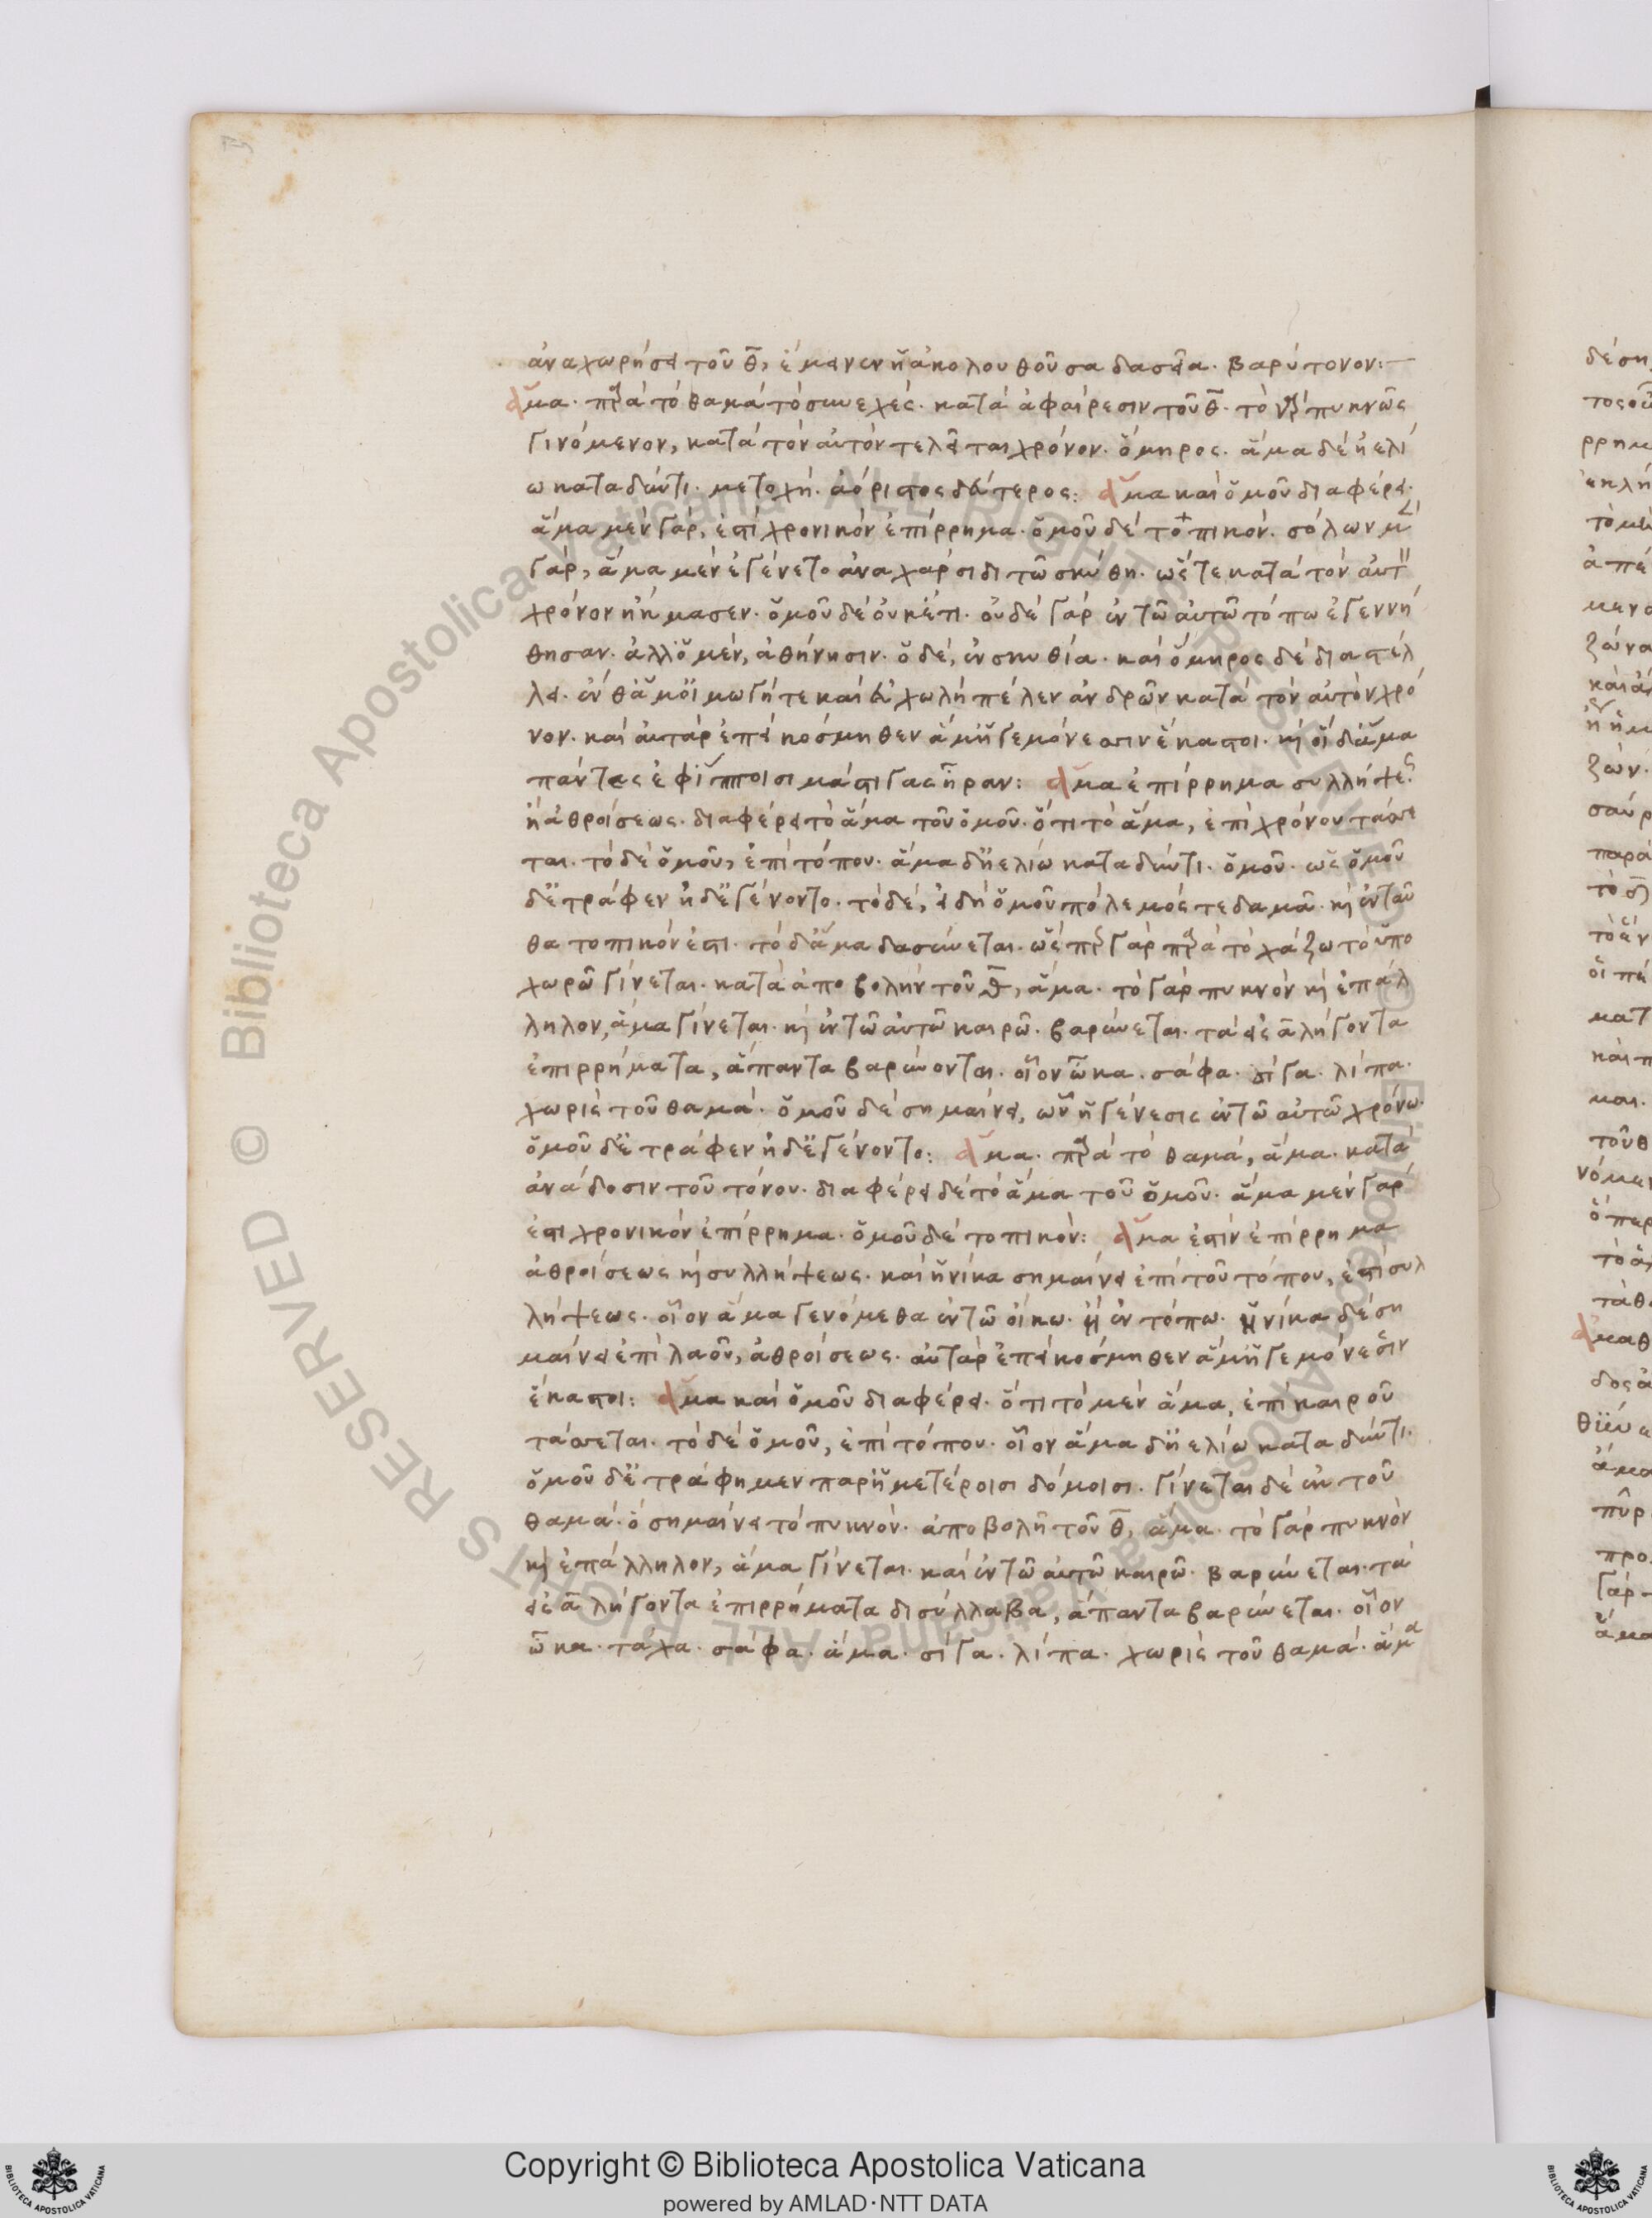 ἀναχωρήσει τοῦ θ̅, ἔμεινεν ἡ ἀκολουθοῦσα δασεῖα. βαρύτονον:
ἅμα. παρὰ τὸ θαμὰ τὸ συνεχές. κατὰ ἀφαίρεσιν τοῦ θ̅. τὸ γὰρ πυκνῶς
γινόμενον, κατὰ τὸν αὐτὸν τελεῖται χρόνον. ὅμηρος. ἅμα δ' ἠελί
ω καταδύντι. μετοχή. ἀόριστος δεύτερος: ἅμα καὶ ὁμοῦ διαφέρει.
ἅμα μὲν γάρ, ἐστὶ χρονικὸν ἐπίρρημα. ὁμοῦ δὲ τοπικόν. σόλων μὲν
γάρ, ἅμα μὲν ἐγένετο ἀναχάρσιδι τῶ σκύθη. ὥστε κατὰ τὸν αὐτ
χρόνον ἤκμασεν. ὁμοῦ δὲ οὐκέτι. οὐδὲ γὰρ ἐν τῶ αὐτῶ τόπω ἐγεννή
θησαν. ἀλλ' ὁ μέν, ἀθήνησιν. ὁ δέ, ἐν σκυθία. καὶ ὅμηρος δὲ διαστέλ
λει. ἔνθα ἅμ' οἰμωγή τε καὶ εὐχωλὴ πέλεν ἀνδρῶν κατὰ τὸν αὐτὸν χρό
νον. καὶ αὐτὰρ ἐπεὶ κόσμηθεν ἅμ' ἡγεμόνεσσιν ἕκαστοι. καὶ οἵ δ' ἅμα
πάντες ἐφ' ἵπποισι μάστιγας ἤραν: ἅμα ἐπίρρημα συλλήψεως
ἢ ἀθροίσεως. διαφέρει τὸ ἅμα τοῦ ὁμοῦ. ὅτι τὸ ἅμα, ἐπὶ χρόνου τάσσε
ται. τὸ δὲ ὁμοῦ, ἐπὶ τόπου. ἅμα δ' ἠελίω καταδύντι. ὁμοῦ. ὡς ὁμοῦ
δ' ἔτραφεν ἠδ' ἐγένοντο. τὸ δέ, εἰ δὴ ὁμοῦ πόλεμός τε δαμᾶ. καὶ ἐνταῦ
θα τοπικόν ἐστι. τὸ δ' ἅμα δασύνεται. ὥσπερ γὰρ παρὰ τὸ χάζω τὸ ὑπο
χωρῶ γίνεται. κατὰ ἀποβολὴν τοῦ θ̅, ἅμα. τὸ γὰρ πυκνὸν καὶ ἐπάλ
ληλον, ἅμα γίνεται. καὶ ἐν τῶ αὐτῶ καιρῶ. βαρύνεται. τὰ εἰς α̅ λήγοντα
ἐπιρρήματα, ἅπαντα βαρύνονται. οἷον ὦκα. σάφα. σίγα. λίπα.
χωρὶς τοῦ θαμά. ὁμοῦ δὲ σημαίνει, ὧν ἡ γένεσις ἐν τῶ αὐτῶ χρόνω.
ὁμοῦ δ' ἔτραφεν ἠδ' ἐγένοντο: ἅμα. παρὰ τὸ θαμά, ἅμα. κατὰ
ἀνάδοσιν τοῦ τόνου. διαφέρει δὲ τὸ ἅμα τοῦ ὁμοῦ. ἅμα μὲν γάρ
ἐστι χρονικὸν ἐπίρρημα. ὁμοῦ δὲ τοπικόν: ἅμα ἐστὶν ἐπίρρημα
ἀθροίσεως καὶ συλλήψεως. καὶ ἡνίκα σημαίνει ἐπὶ τοῦ τόπου, ἐστὶ συλ
λήψεως. οἷον ἅμα γενόμεθα ἐν τῶ οἴκω. ἢ ἐν τόπω. ἡνίκα δὲ ση
μαίνει ἐπὶ λαοῦ, ἀθροίσεως. αὐτὰρ ἐπεὶ κόσμηθεν ἅμ' ἡγεμόνεσσιν
ἕκαστοι: ἅμα καὶ ὁμοῦ διαφέρει. ὅτι τὸ μὲν ἅμα, ἐπὶ καιροῦ
τάσσεται. τὸ δὲ ὁμοῦ, ἐπὶ τόπου. οἷον ἅμα δ' ἠελίω καταδύντι.
ὁμοῦ δ' ἐτράφημεν παρ' ἡμετέροισι δόμοισι. γίνεται δὲ ἐκ τοῦ
θαμά. ὃ σημαίνει τὸ πυκνόν. ἀποβολῇ τοῦ θ̅, ἅμα. τὸ γὰρ πυκνὸν
καὶ ἐπάλληλον, ἅμα γίνεται. καὶ ἐν τῶ αὐτῶ καιρῶ. βαρύνεται. τὰ
εἰς α̅ λήγοντα ἐπιρρήματα δισύλλαβα, ἅπαντα βαρύνεται. οἷον
ὦκα. τάχα. σάφα. ἅμα. σίγα. λίπα. χωρὶς τοῦ θαμά. ἅμα
Copyright © Biblioteca Apostolica Vaticana
powered by AMLAD·NTT DATA